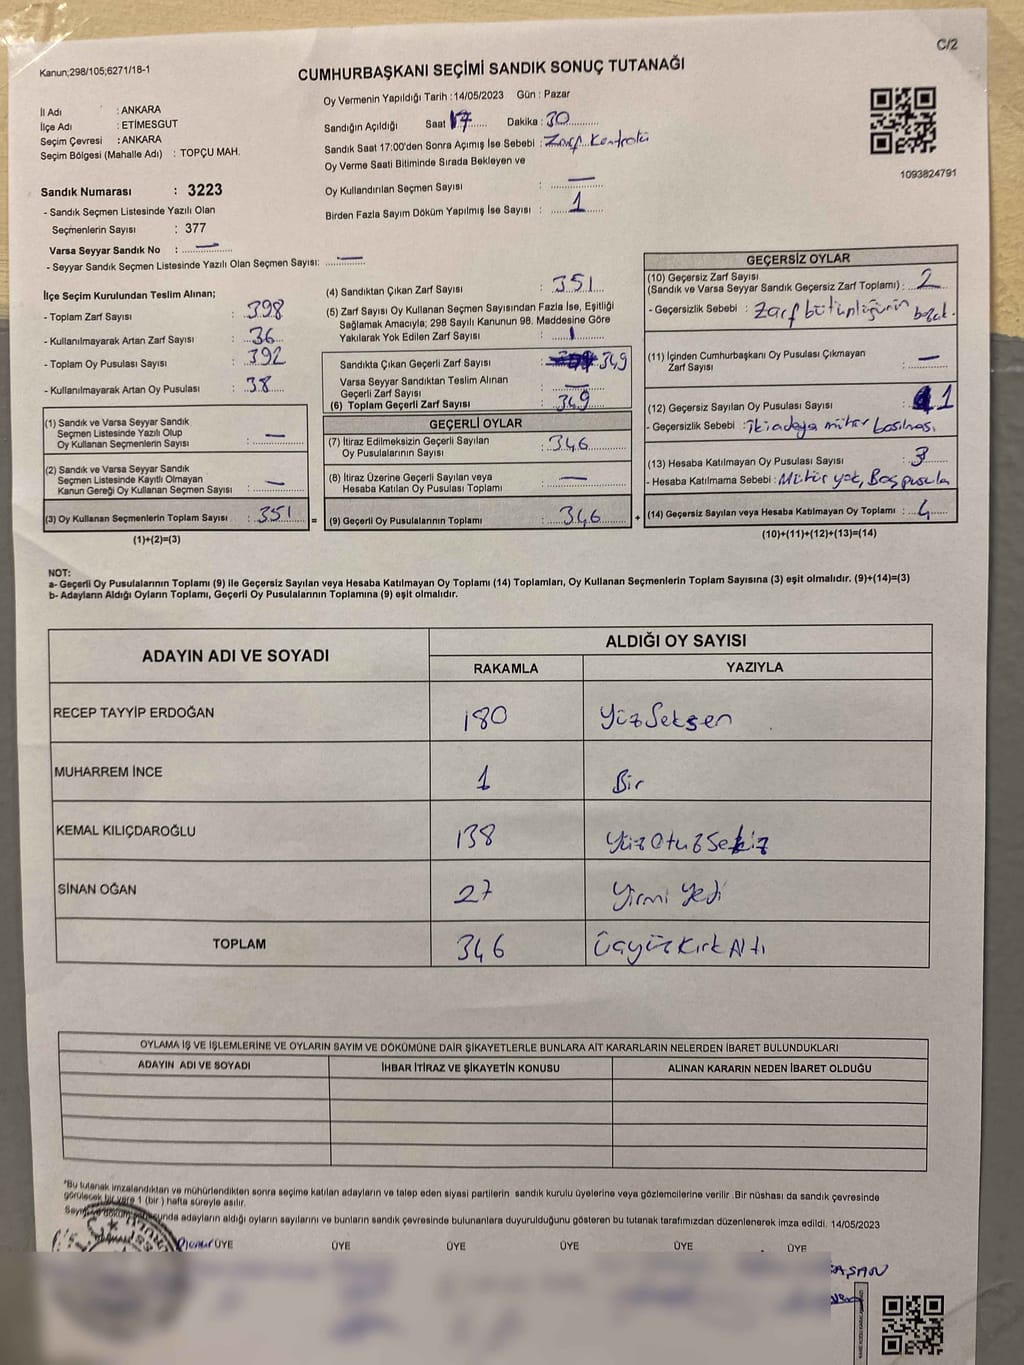 C/2
Kanun;298/105;6271/18-1
CUMHURBAŞKANI SEÇİMİ SANDIK SONUÇ TUTANAĞI
İl Adı : ANKARA
İlçe Adı : ETİMESGUT
Seçim Çevresi : ANKARA
Seçim Bölgesi (Mahalle Adı) : TOPÇU MAH.
Oy Vermenin Yapıldığı Tarih :14/05/2023 Gün : Pazar
Sandığın Açıldığı Saat 17 Dakika : 30
Sandık Saat 17:00'den Sonra Açımış İse Sebebi : Zarf Kontrolü
Oy Verme Saati Bitiminde Sırada Bekleyen ve
Oy Kullandırılan Seçmen Sayısı : —
Birden Fazla Sayım Döküm Yapılmış İse Sayısı : 1
1093824791
Sandık Numarası : 3223
- Sandık Seçmen Listesinde Yazılı Olan
Seçmenlerin Sayısı : 377
Varsa Seyyar Sandık No : —
- Seyyar Sandık Seçmen Listesinde Yazılı Olan Seçmen Sayısı: —
İlçe Seçim Kurulundan Teslim Alınan;
- Toplam Zarf Sayısı : 398
- Kullanılmayarak Artan Zarf Sayısı : 36
- Toplam Oy Pusulası Sayısı : 392
- Kullanılmayarak Artan Oy Pusulası : 38
(1) Sandık ve Varsa Seyyar Sandık
Seçmen Listesinde Yazılı Olup
Oy Kullanan Seçmenlerin Sayısı : —
(2) Sandık ve Varsa Seyyar Sandık
Seçmen Listesinde Kayıtlı Olmayan
Kanun Gereği Oy Kullanan Seçmen Sayısı : —
(3) Oy Kullanan Seçmenlerin Toplam Sayısı : 351 =
(1)+(2)=(3)
(4) Sandıktan Çıkan Zarf Sayısı : 351
(5) Zarf Sayısı Oy Kullanan Seçmen Sayısından Fazla İse, Eşitliği
Sağlamak Amacıyla; 298 Sayılı Kanunun 98. Maddesine Göre
Yakılarak Yok Edilen Zarf Sayısı :
Sandıkta Çıkan Geçerli Zarf Sayısı : 349
Varsa Seyyar Sandıktan Teslim Alınan
Geçerli Zarf Sayısı : —
(6) Toplam Geçerli Zarf Sayısı : 349
GEÇERLİ OYLAR
(7) İtiraz Edilmeksizin Geçerli Sayılan
Oy Pusulalarının Sayısı : 346
(8) İtiraz Üzerine Geçerli Sayılan veya
Hesaba Katılan Oy Pusulası Toplamı : —
(9) Geçerli Oy Pusulalarının Toplamı : 346 +
GEÇERSİZ OYLAR
(10) Geçersiz Zarf Sayısı
(Sandık ve Varsa Seyyar Sandık Geçersiz Zarf Toplamı) : 2
- Geçersizlik Sebebi : Zarf bütünlüğünün bozul.
(11) İçinden Cumhurbaşkanı Oy Pusulası Çıkmayan
Zarf Sayısı : —
(12) Geçersiz Sayılan Oy Pusulası Sayısı : 1
- Geçersizlik Sebebi : İki adaya mühür basılması
(13) Hesaba Katılmayan Oy Pusulası Sayısı : 3
- Hesaba Katılmama Sebebi : Mühür yok, Boş pusula
(14) Geçersiz Sayılan veya Hesaba Katılmayan Oy Toplamı : 4
(10)+(11)+(12)+(13)=(14)
NOT:
a- Geçerli Oy Pusulalarının Toplamı (9) ile Geçersiz Sayılan veya Hesaba Katılmayan Oy Toplamı (14) Toplamları, Oy Kullanan Seçmenlerin Toplam Sayısına (3) eşit olmalıdır. (9)+(14)=(3)
b- Adayların Aldığı Oyların Toplamı, Geçerli Oy Pusulalarının Toplamına (9) eşit olmalıdır.
ADAYIN ADI VE SOYADI
ALDIĞI OY SAYISI
RAKAMLA YAZIYLA
RECEP TAYYİP ERDOĞAN 180 Yüz Seksen
MUHARREM İNCE 1 Bir
KEMAL KILIÇDAROĞLU 138 Yüz Otuz Sekiz
SİNAN OĞAN 27 Yirmi Yedi
TOPLAM 346 Üçyüz Kırk Altı
OYLAMA İŞ VE İŞLEMLERİNE VE OYLARIN SAYIM VE DÖKÜMÜNE DAİR ŞİKAYETLERLE BUNLARA AİT KARARLARIN NELERDEN İBARET BULUNDUKLARI
ADAYIN ADI VE SOYADI İHBAR İTİRAZ VE ŞİKAYETİN KONUSU ALINAN KARARIN NEDEN İBARET OLDUĞU
"Bu tutanak imzalandıktan ve mühürlendikten sonra seçime katılan adayların ve talep eden siyasi partilerin sandık kurulu üyelerine veya gözlemcilerine verilir .Bir nüshası da sandık çevresinde
görülecek bir yere 1 (bir ) hafta süreyle asılır.
adayların aldığı oyların sayılarını ve bunların sandık çevresinde bulunanlara duyurulduğunu gösteren bu tutanak tarafımızdan düzenlenerek imza edildi. 14/05/2023
ÜYE ÜYE ÜYE ÜYE ÜYE ÜYE